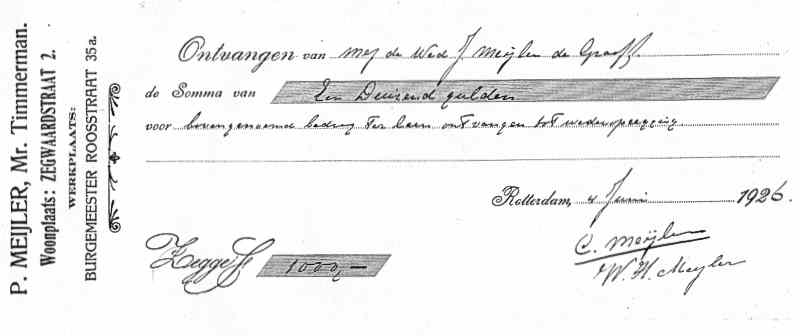 P. MEIJLER, Mr. Timmerman.
Woonplaats: ZEGWAARDSTRAAT 2.
WERKPLAATS:
BURGEMEESTER ROOSSTRAAT 35a.
Ontvangen van Mej de Wed J Meijler de Graaff.
de Somma van Een Duizend gulden
voor bovengenoemd bedrag ter leen ontvangen tot wederopzegging
Rotterdam, 4 Juni 1926.
Zegge ƒ 1000,—
C. Meijler
W. H. Meijler